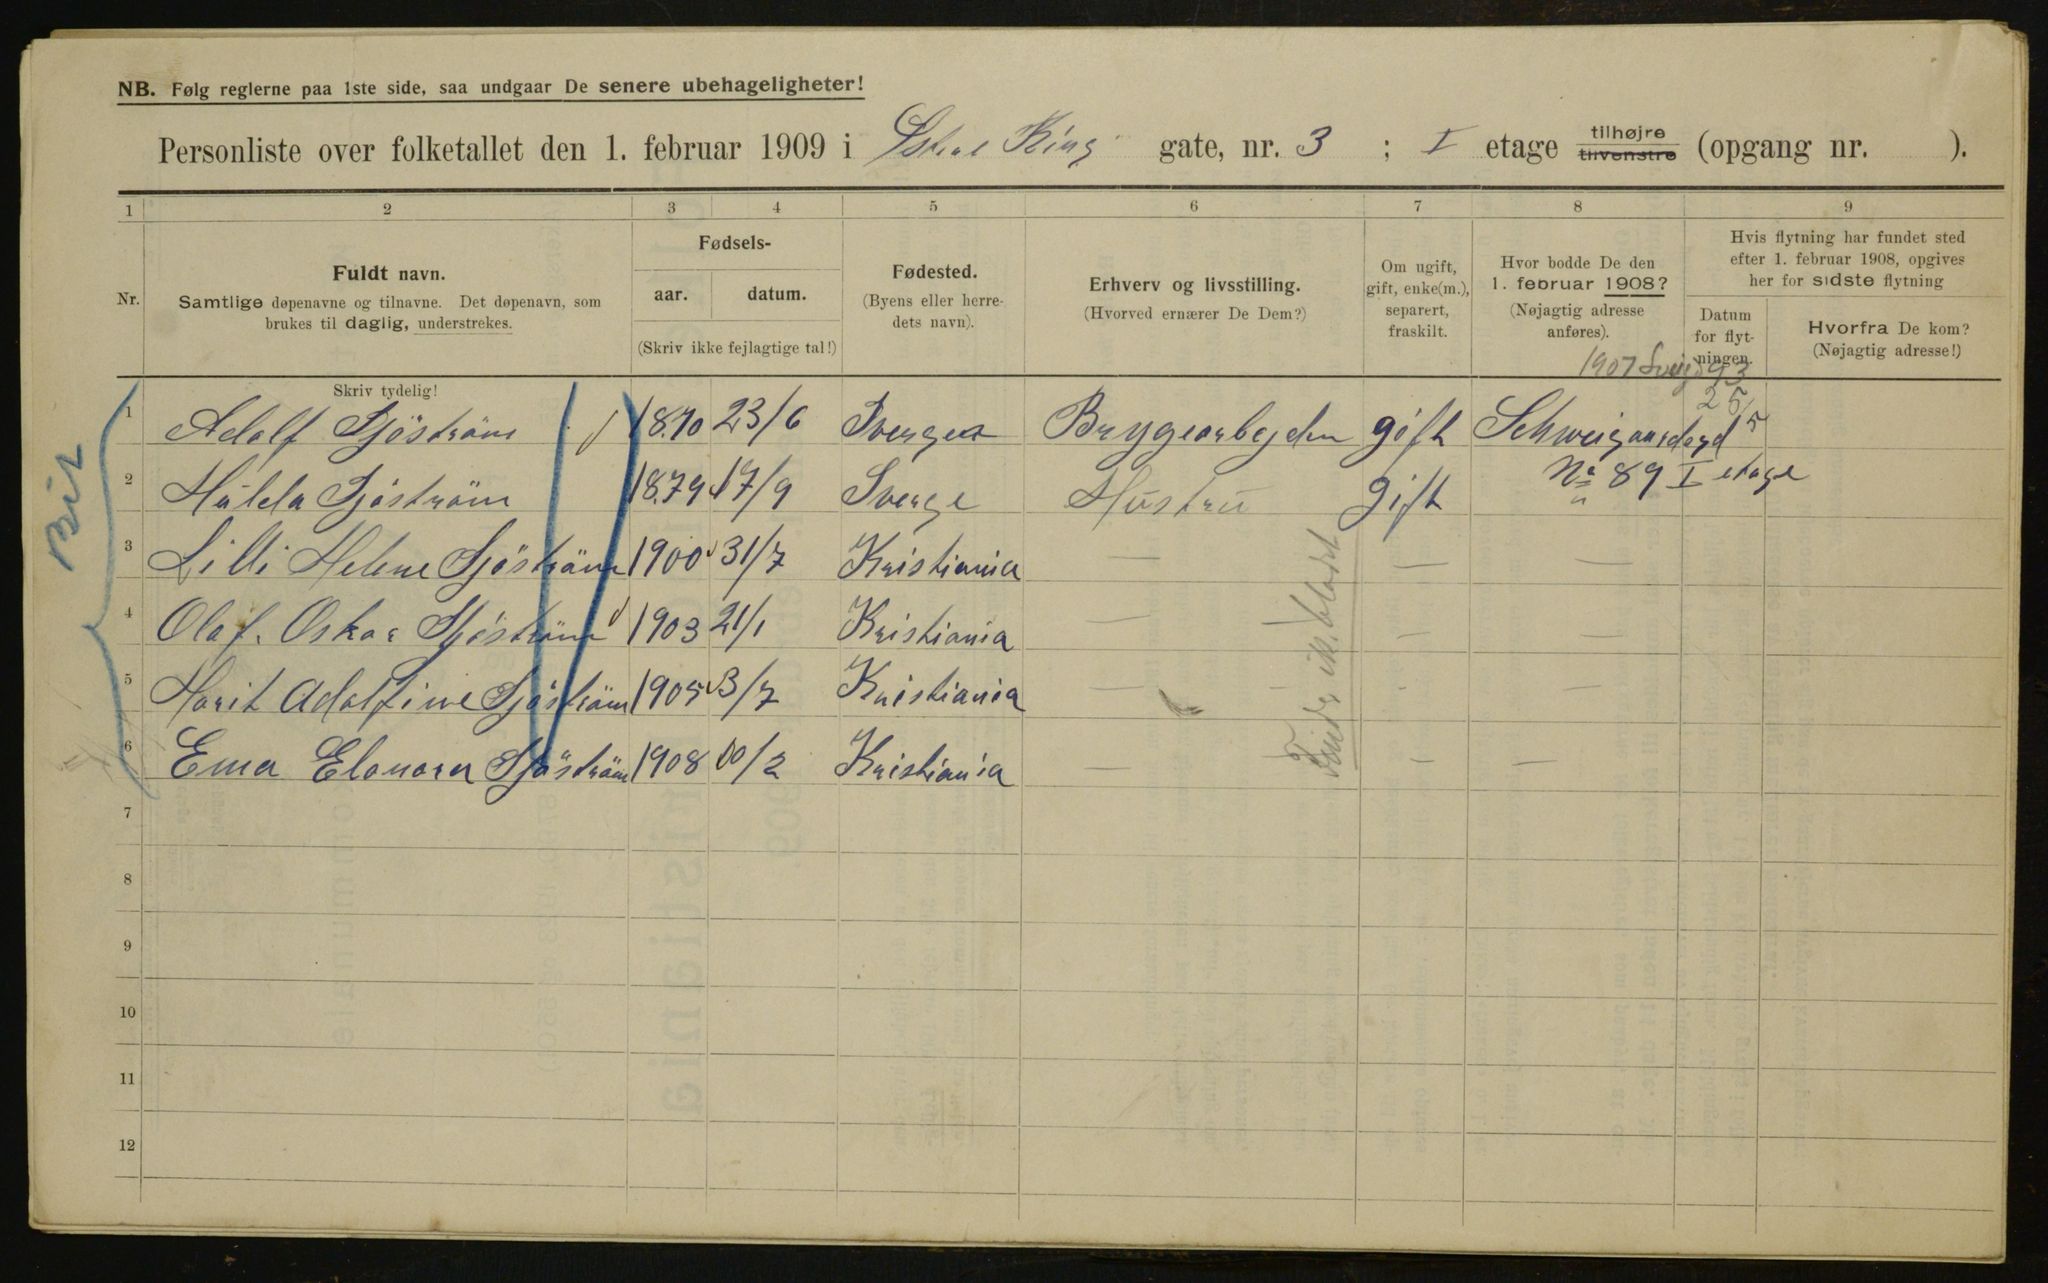 NB. Følg reglerne paa 1ste side, saa undgaar De senere ubehageligheter!
Personliste over folketallet den 1. februar 1909 i gate, nr. 3 ; I etage tilhøjre tilvenstre (opgang nr. ).
1 2 3 4 5 6 7 8 9
Nr.
Fuldt navn.
Samtlige døpenavne og tilnavne. Det døpenavn, som
brukes til daglig, understrekes.
Fødsels-
aar. datum.
(Skriv ikke fejlagtige tal!)
Fødested.
(Byens eller herre-
dets navn).
Erhverv og livsstilling.
(Hvorved ernærer De Dem?)
Om ugift,
gift, enke(m.),
separert,
fraskilt.
Hvor bodde De den
1. februar 1908?
(Nøjagtig adresse
anføres).
Hvis flytning har fundet sted
efter 1. februar 1908, opgives
her for sidste flytning
Datum
for flyt-
ningen.
Hvorfra De kom?
(Nøjagtig adresse!)
Skriv tydelig!
1907
1 Adolf Sjöström 1870 23/6 Sverge Bryggearbejder gift Schweigaardsgd 25/5
2 Hulda Sjöström 1879 17/9 Sverge Hustru gift No 89 I etage
3 Lilli Helene Sjöström 1900 31/7 Kristiania — — —
4 Olaf Oskar Sjöström 1903 21/1 Kristiania — — — —
5 Marit Adolfine Sjöström 1905 3/7 Kristiania — — - —
6 Ema Elonora Sjöström 1908 10/2 Kristiania — — —
7
8
9
10
11
12